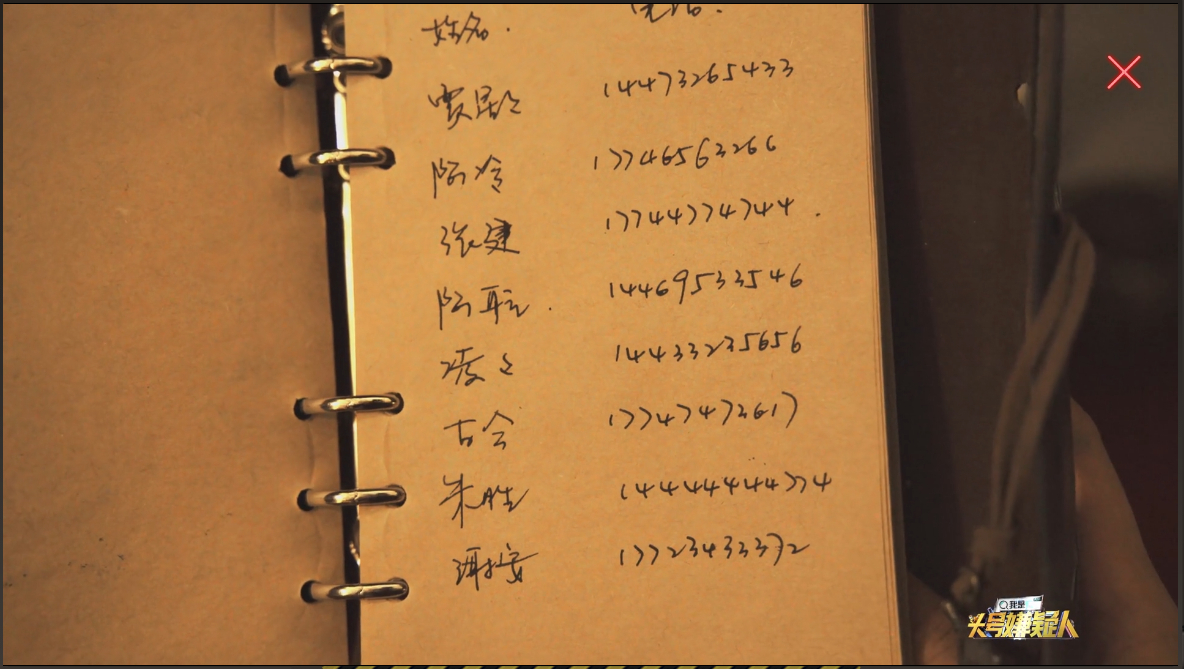 姓名. 电话.
贾昆 14473265433
阿冷 17746563266
张建 17744774744.
阿联. 14469533546
凌 14433235656
古会 17747473617
朱胜 14444444774
17723433372
我是
头号嫌疑人